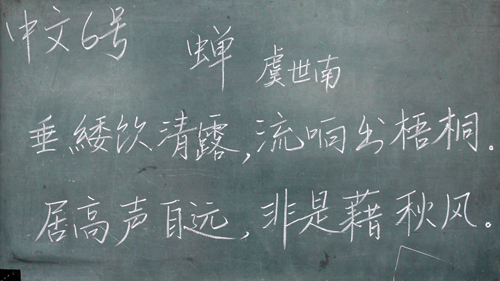 中文6号
蝉 虞世南
垂緌饮清露,流响出梧桐。
居高声自远,非是藉秋风。